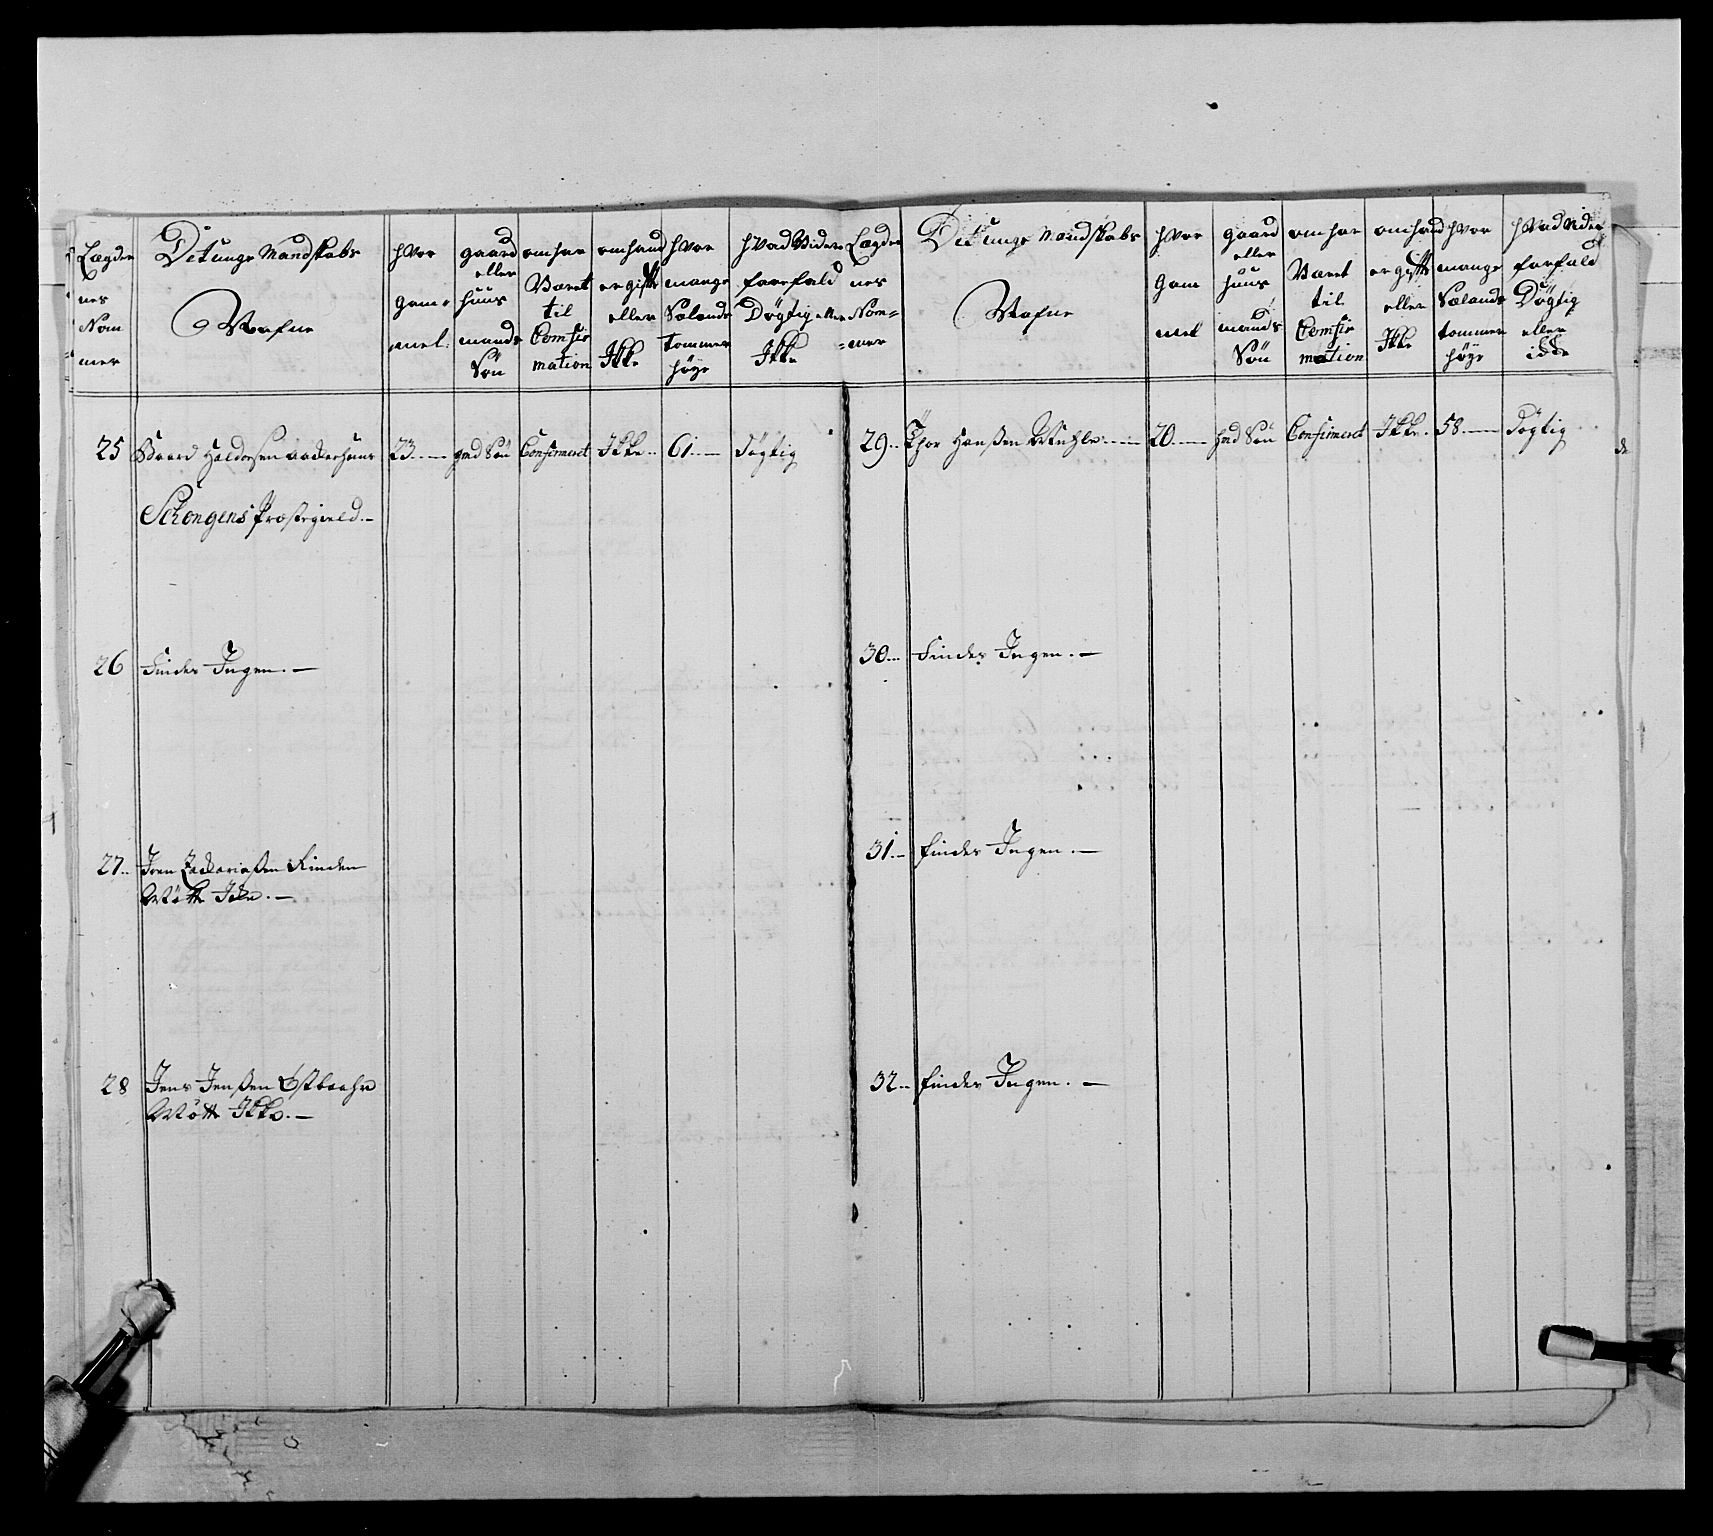 Lægder
nes
Nom
mer
Det unge Mandskabs
Nafne
hvor
gam
mel.
gaard
eller
huus
mands
Søn
om har
Været
til
Comfir
mation
om hand
er gift
eller
Ikke
hvor
mange
Sælands
tommer
høye
hvad Videre
forefald
Døgtig eller
Ikke
25 Baard Haldorsen 23 gmd Søn Confirmeret Ikke 61 døgtig
Schongens Præstegield
26 Findes Ingen.
27 Joen Zachariassen Rinden
Møtte Ikke.
28 Jens Jenssen Østbaahr
Møtt Ikke.
Lægder
nes
Nom=
=mer
Det unge Mandskabs
Nafne
hvor
gam
mel
gaard
eller
huus
mands
Søn
om har
Været
til
Comfir
mation
om hand
er gift
eller
Ikke
hvor
mange
Sælands
tommer
høye
hvad Videre
forfald
Døgtig
eller
ikke
29 Thor Hanssen 20 hmd Søn Confirmeret Ikke 58 døgtig
30 Findes Ingen.
31 findes Ingen.
32 findes Ingen.